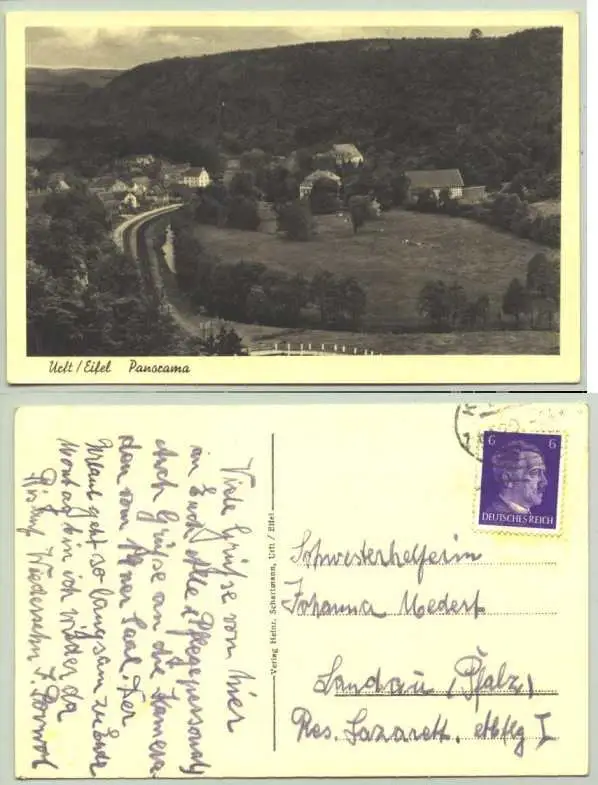 Urft / Eifel Panorama
6 6
DEUTSCHES REICH
Viele Grüße von hier
an Euch Alle u. Pflegepersonal,
auch Grüße an die Kamera
den vom Saal. Der
Urlaub geht so langsam zu Ende
Montag bin ich wieder da
Auf Wiedersehn
Verlag Heinr. Schartmann, Urft / Eifel
Schwesterhelferin
Johanna Mederf
Landau (Pfalz)
Res. Lazarett. Abtlg I